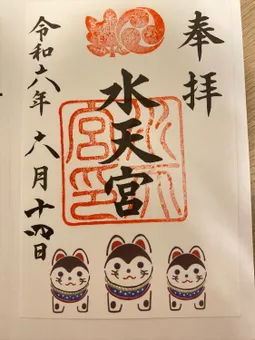 奉拝
水天宮
令和六年六月十四日